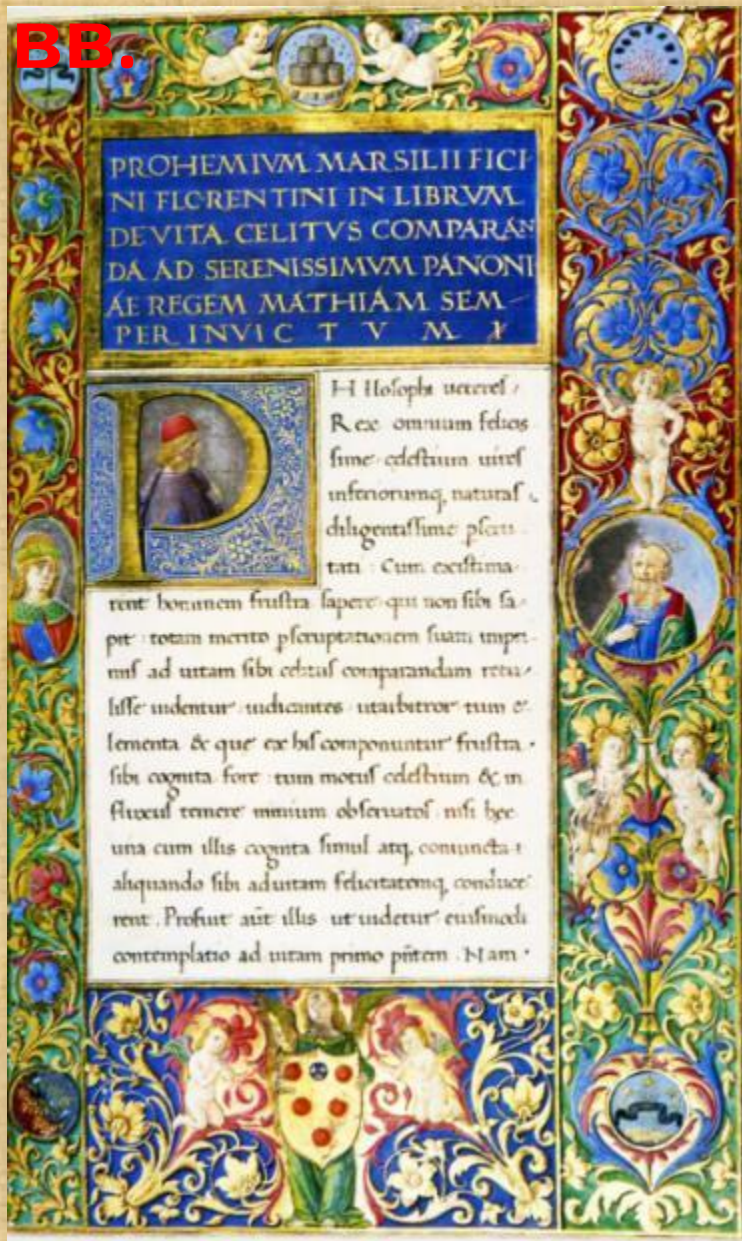 BB.
PROHEMIVM MARSILII FICI
NI FLORENTINI IN LIBRVM
DE VITA CELITVS COMPARAN
DA AD SERENISSIMVM PANONI
AE REGEM MATHIAM SEM
PER INVICTVM
PHIlosophi ueteres
Rex omnium felicis
sime cęlestium uires
inferiorumq, naturas
diligentissime pscru
tati. Cum existima
rent hominem frustra sapere qui non sibi sa
pit totam merito pscruptationem suam impri
mis ad uitam sibi celitus comparandam retu
lisse uidentur iudicantes utarbitror tum e
lementa & que ex his componuntur frustra
sibi cognita fore tum motus cęlestium & in
fluxus temere nimium obseruatos nisi hec
una cum illis cognita simul atq, coniuncta
aliquando sibi aduitam felicitatemq, conduce
rent. Profuit aūt illis ut uidetur eiusmodi
contemplatio ad uitam primo pn̄tem. Nam